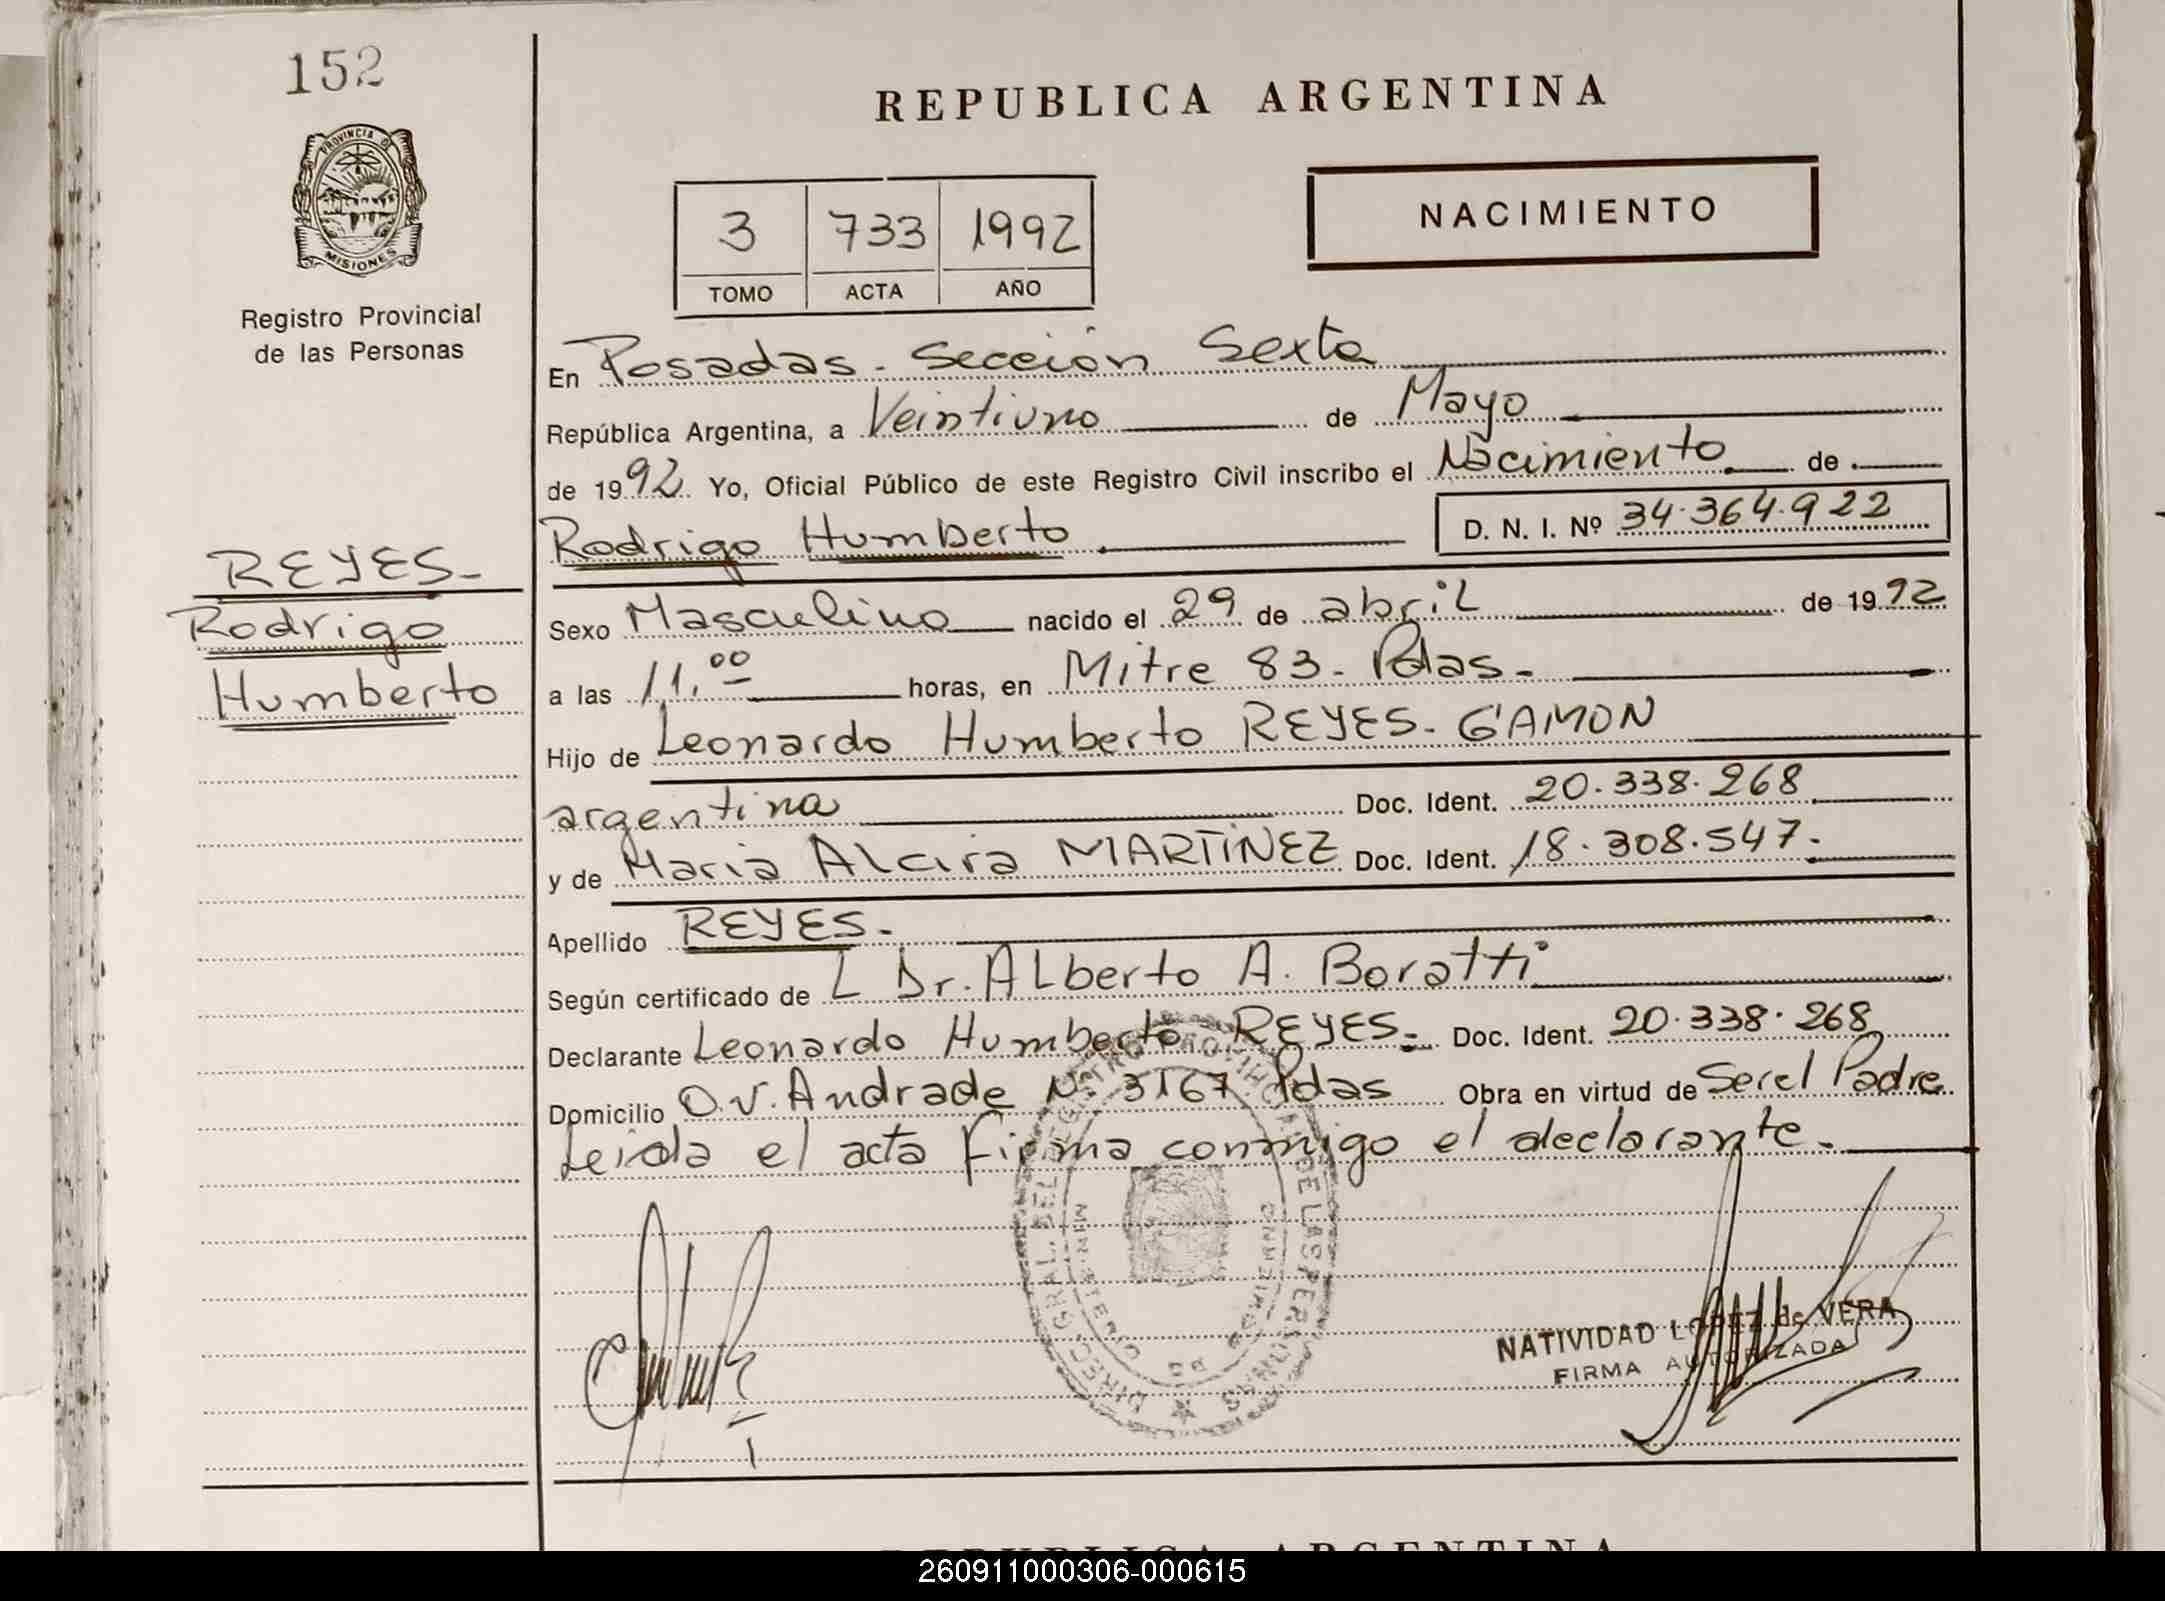 152
REPUBLICA ARGENTINA
PROVINCIA DE
MISIONES
Registro Provincial
de las Personas
3 733 1992
TOMO ACTA AÑO
NACIMIENTO
En Posadas. Sección Sexta
República Argentina, a Veintiuno de Mayo
de 1992. Yo, Oficial Público de este Registro Civil inscribo el Nacimiento de
Rodrigo Humberto D. N. I. Nº 34.364.922
REYES-
Rodrigo
Humberto
Sexo Masculino nacido el 29 de abril de 1992
a las 11,00 horas, en Mitre 83- Pdas-
Hijo de Leonardo Humberto REYES- GAMON
argentina Doc. Ident. 20.338.268
y de Maria Alcira MARTINEZ Doc. Ident. 18.308.547.
Apellido REYES.
Según certificado de L Dr. Alberto A. Boratti
Declarante Leonardo Humberto REYES- Doc. Ident. 20.338.268
Domicilio O.V. Andrade Nº 3167 Pdas Obra en virtud de Ser el Padre
Leida el acta firma conmigo el declarante.
DIREC. GRAL. DEL REGISTRO PROVINCIAL DE LAS PERSONAS
MINISTERIO DE GOBIERNO
NATIVIDAD LOPEZ de VERA
FIRMA AUTORIZADA
REPUBLICA ARGENTINA
260911000306-000615